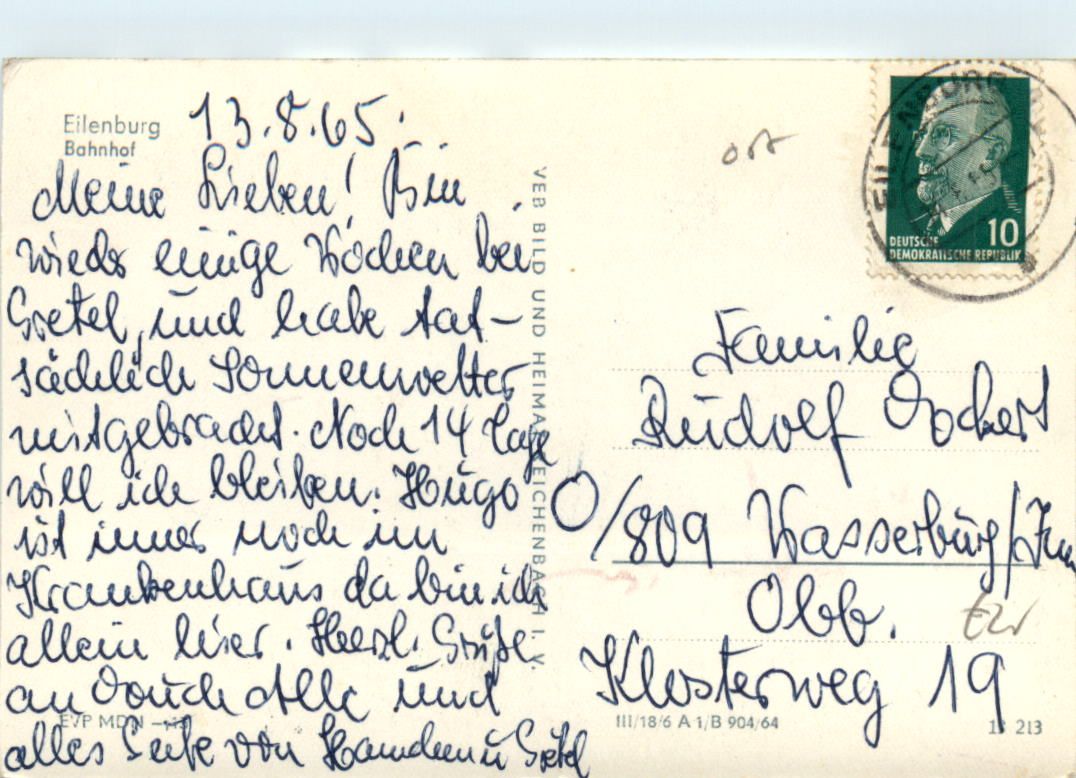 Eilenburg
Bahnhof
13.8.65.
Meine Lieben! Bin
wieder einige Wochen bei
Gretel, und habe tat-
sächlich Sonnenwetter
mitgebracht. Noch 14 Tage
will ich bleiben. Hugo
ist immer noch im
Krankenhaus da bin ich
allein hier. Herzl. Grüße
an Alle und
alles Gute von u Gretel
EVP MDN
VEB BILD UND HEIMAT REICHENBACH I. V.
ort
EILENBURG
10
DEUTSCHE
DEMOKRATISCHE REPUBLIK
Familie
Rudolf
O/809 Wasserburg/Inn
Obb.
Klosterweg 19
III/18/6 A 1/B 904/64
213